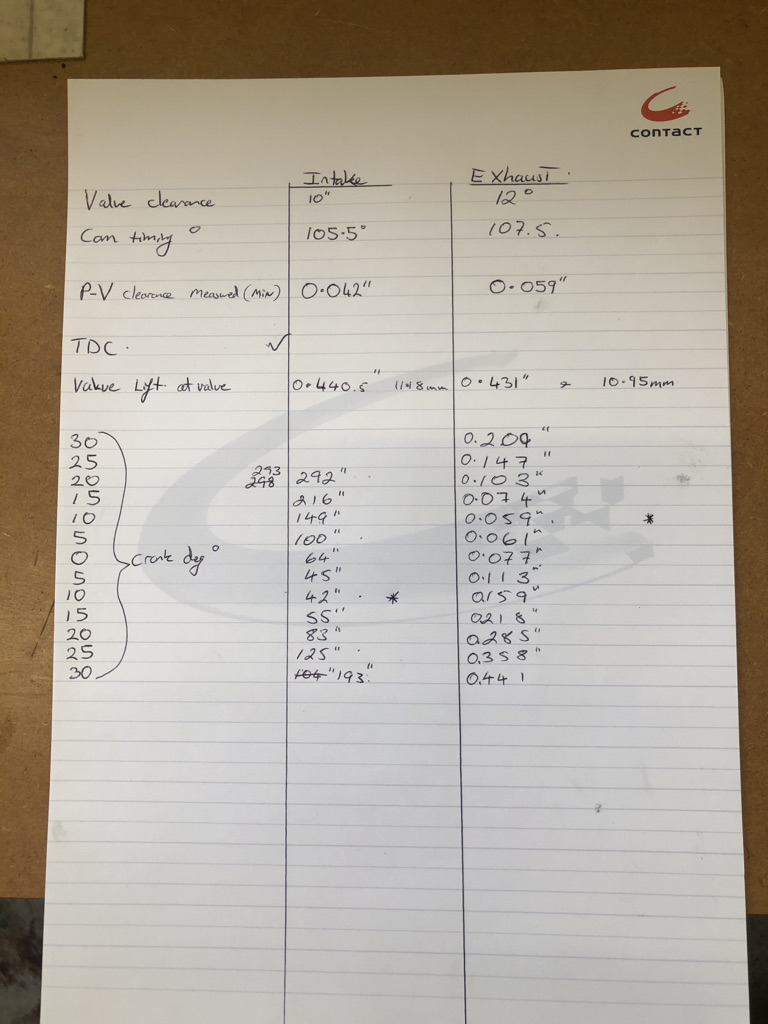 CONTACT
Intake Exhaust.
Valve clearance 10" 12°
Cam timing ° 105.5° 107.5.
P-V clearance measured (Min) 0.042" 0.059"
TDC. ✓
Valve Lift at valve 0.440.5" 11.18mm 0.431" 10.95mm
30 0.209"
25 0.147"
293
20 298 292" 0.103"
15 216" 0.074"
10 149" 0.059". *
5 100" 0.061"
0 Crank deg ° 64" 0.077"
5 45" 0.113"
10 42" * 0.159"
15 55" 0.218"
20 83" 0.285"
25 125" 0.358"
30 104" 193" 0.441